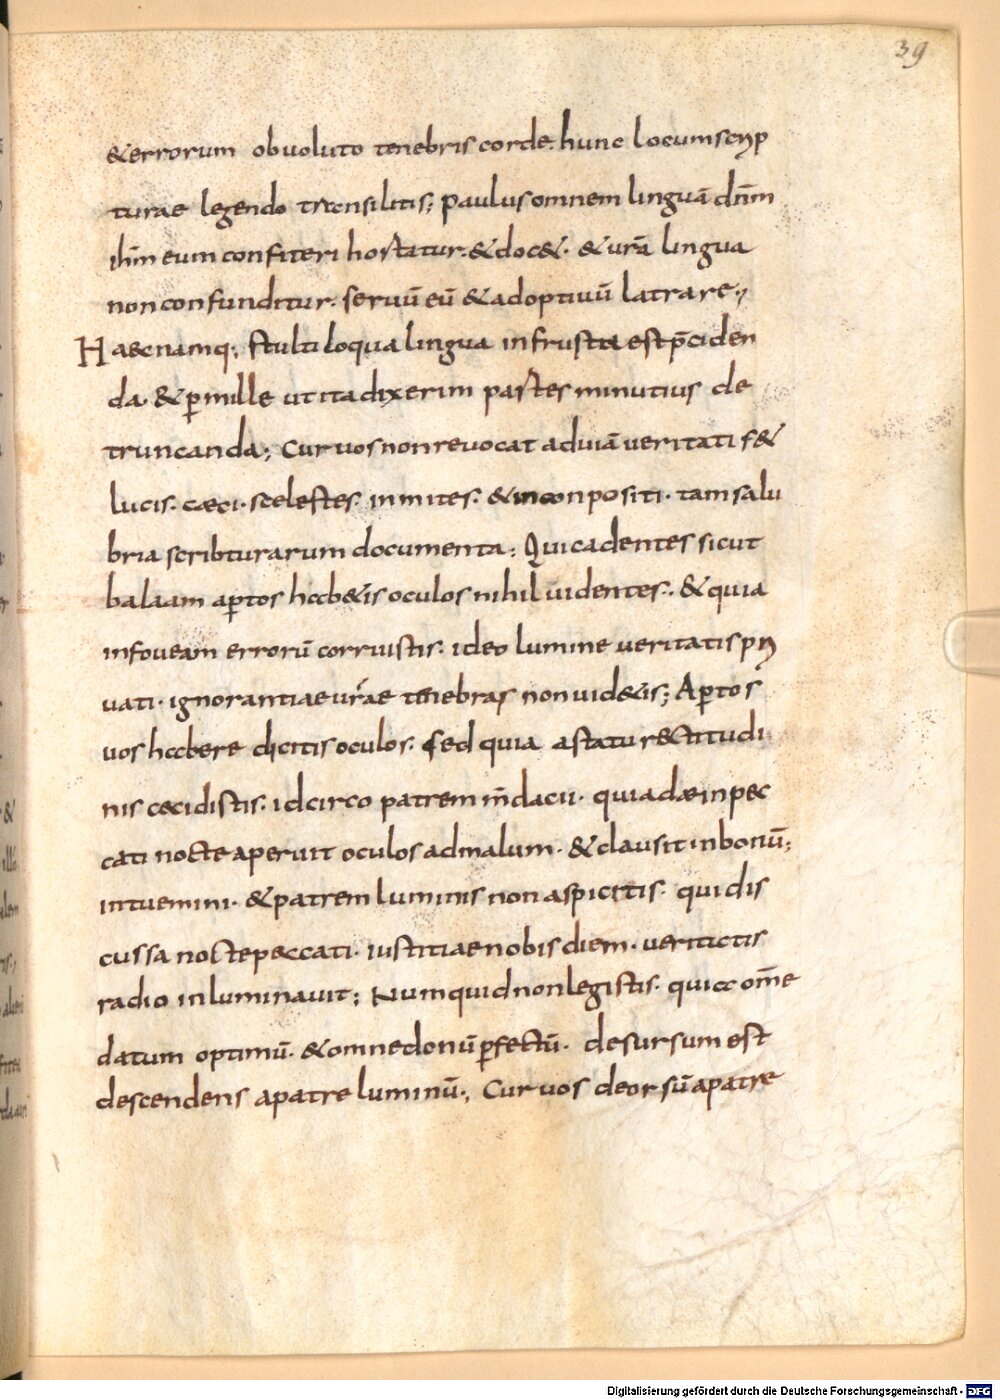 39
& errorum obuoluto tenebris corde. hunc locum scrip
turae legendo transilitis; paulus omnem linguā dn̄m
ihm̄ eum confiteri hortatur. & doc&. & urā lingua
non confunditur. seruū eū & adoptiuū latrare;
Haec namq; stultiloqua lingua in frusta est p̄ciden
da. & p̱ mille ut ita dixerim partes minutius de
truncanda; Cur uos non reuocat ad uiā ueritatis &
lucis. cæci. scelestes. inmites. & inconpositi. tam salu
bria scribturarum documenta; Qui cadentes sicut
balaam ap̱tos hab&is oculos nihil uidentes. & quia
in foueam errorū corruistis. ideo lumine ueritatis pri
uati. ignorantiae urāe tenebras non uid&is; Ap̱tos
uos habere dicitis oculos. Sed quia a statu r&titudi
nis cecidistis. idcirco patrem m̄dacii. qui adæ in pec
cati nocte aperuit oculos ad malum. & clausit in bonū;
intuemini. & patrem luminis non aspicitis. qui dis
cussa nocte peccati. iustitiae nobis diem. ueritatis
radio inluminauit; Numquid non legistis. quia om̄e
datum optimū. & omne donū p̱fectū. desursum est
descendens a patre luminū; Cur uos deorsū a patre
Digitalisierung gefördert durch die Deutsche Forschungsgemeinschaft - DFG